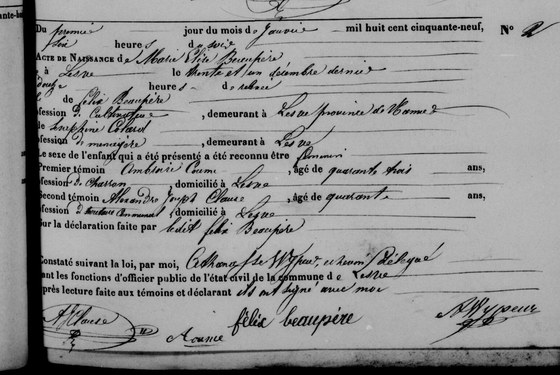 Du premier jour du mois de Janvier mil huit cent cinquante-neuf, N° 2
six heures du soir
ACTE DE NAISSANCE de Marie Elise Beaupère
à Lesve le trente et un décembre dernier
douze heures de relevée
de Félix Beaupère
fession de Cultivateur, demeurant à Lesve province de Namur
de Joséphine Colard
fession de menagère, demeurant à Lesve
Le sexe de l'enfant qui a été présenté a été reconnu être féminin
Premier témoin Ambroise Coume, âgé de quarante trois ans,
fession de Charron, domicilié à Lesve
Second témoin Alexandre Joseph Clause, âgé de quarante ans,
fession d' communal, domicilié à Lesve
Sur la déclaration faite par ledit félix Beaupère
Constaté suivant la loi, par moi, Athanase Wypeur, échevin délégué
ant les fonctions d'officier public de l'état civil de la commune de Lesve
près lecture faite aux témoins et déclarant ils ont signé avec moi
AJClause félix beaupère AWypeur
Acoume